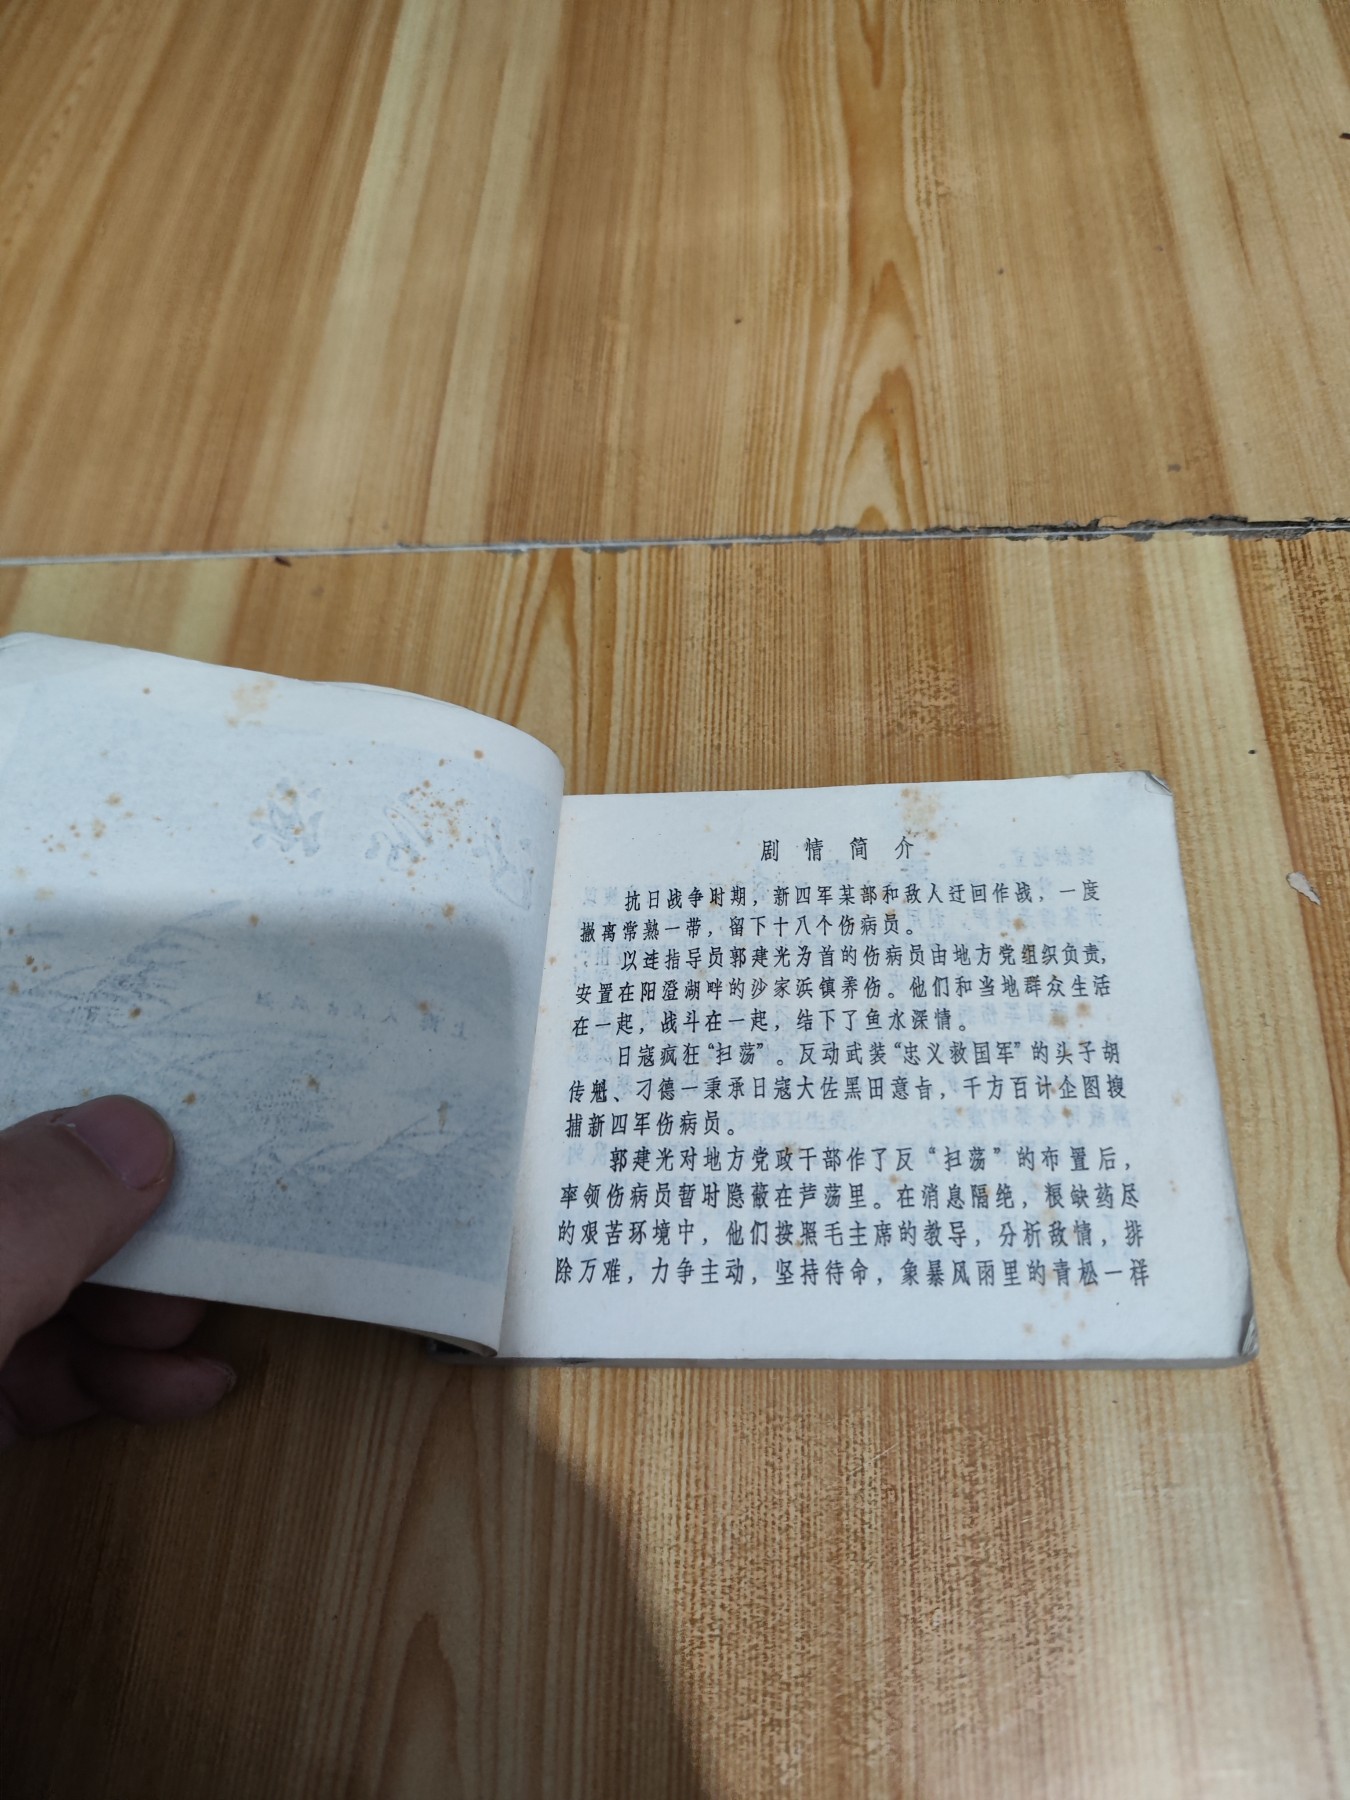 剧情简介
抗日战争时期，新四军某部和敌人迂回作战，一度
撤离常熟一带，留下十八个伤病员。
以连指导员郭建光为首的伤病员由地方党组织负责，
安置在阳澄湖畔的沙家浜镇养伤。他们和当地群众生活
在一起，战斗在一起，结下了鱼水深情。
日寇疯狂“扫荡”。反动武装“忠义救国军”的头子胡
传魁、刁德一秉承日寇大佐黑田意旨，千方百计企图搜
捕新四军伤病员。
郭建光对地方党政干部作了反“扫荡”的布置后，
率领伤病员暂时隐蔽在芦荡里。在消息隔绝，粮缺药尽
的艰苦环境中，他们按照毛主席的教导，分析敌情，排
除万难，力争主动，坚持待命，象暴风雨里的青松一样